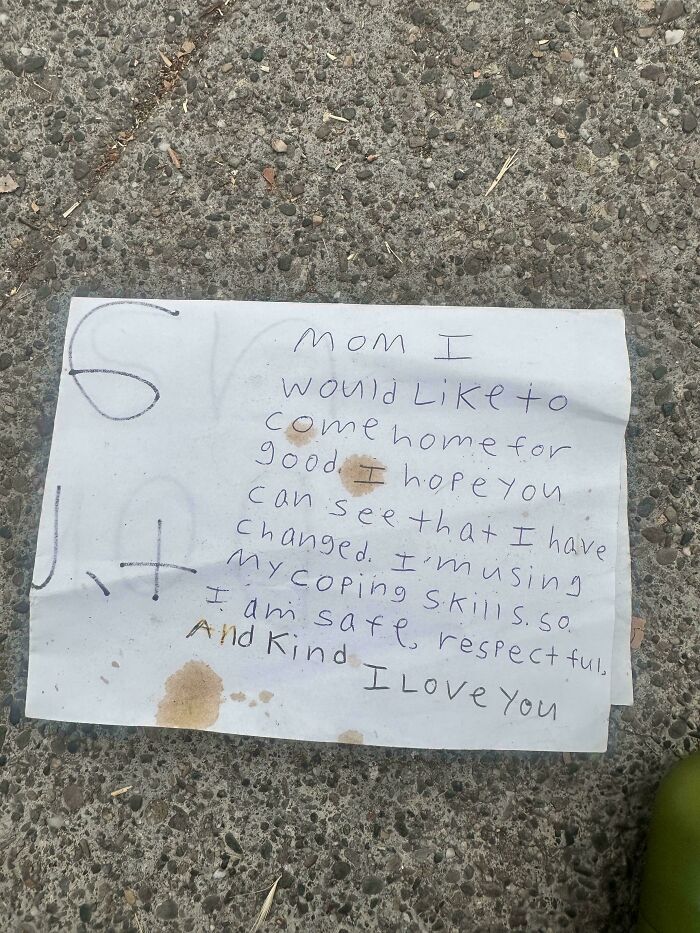 Mom I
would Like to
come home for
good. I hope you
can see that I have
changed. I'm using
My coping skills. so
I am safe, respectful,
And Kind
I Love You